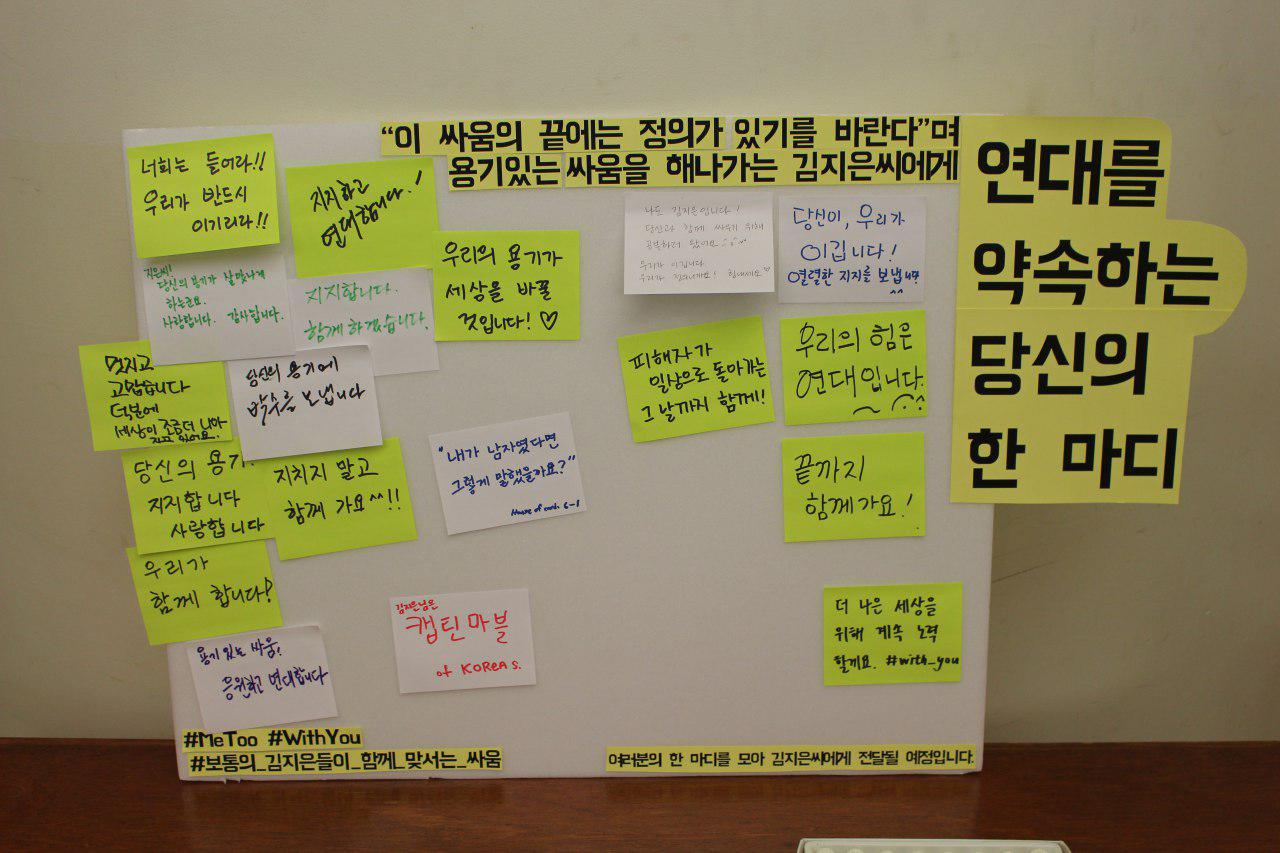 “이 싸움의 끝에는 정의가 있기를 바란다”며
용기있는 싸움을 해나가는 김지은씨에게
연대를
약속하는
당신의
한 마디
너희는 들어라!!
우리가 반드시
이기리라!!
지지하고
연대합니다!
우리의 용기가
세상을 바꿀
것입니다! ♡
나도 김지은입니다!
당신과 함께 싸우기 위해
우리가 이깁니다.
당신이, 우리가
이깁니다!
열렬한 지지를 보냅니다
^^
지은씨!
당신의 용기가 살맛나게
하는군요.
사랑합니다. 감사합니다.
지지합니다.
함께 하겠습니다.
피해자가
일상으로 돌아가는
그 날까지 함께!
우리의 힘은
연대입니다.
멋지고
고맙습니다
덕분에
세상이 조금더 나아
지고 있어요.
당신의 용기에
박수를 보냅니다
당신의 용기.
지지합니다
사랑합니다
지치지 말고
함께 가요^^!!
"내가 남자였다면
그렇게 말했을까요?"
House of cards. 6-1
끝까지
함께가요!
우리가
함께 합니다!
김지은님은
캡틴마블
of KOREA s.
더 나은 세상을
위해 계속 노력
할게요. #with_you
용기 있는 싸움!
응원하고 연대합니다
#MeToo #WithYou
#보통의_김지은들이_함께_맞서는_싸움
여러분의 한 마디를 모아 김지은씨에게 전달될 예정입니다.